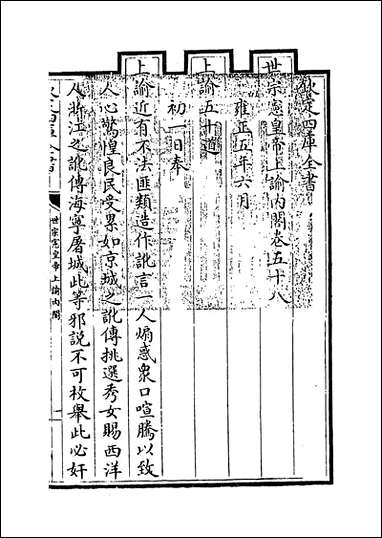 欽定四庫全書
世宗憲皇帝上諭內閣卷五十八
雍正五年六月
上諭五十道
初一日奉
上諭近有不法匪類造作訛言一人煽惑衆口喧騰以致
人心驚惶良民受累如京城之訛傳挑選秀女賜西洋
人浙江之訛傳海寧屠城此等邪說不可枚舉此必奸
世宗憲皇帝上諭內閣
一